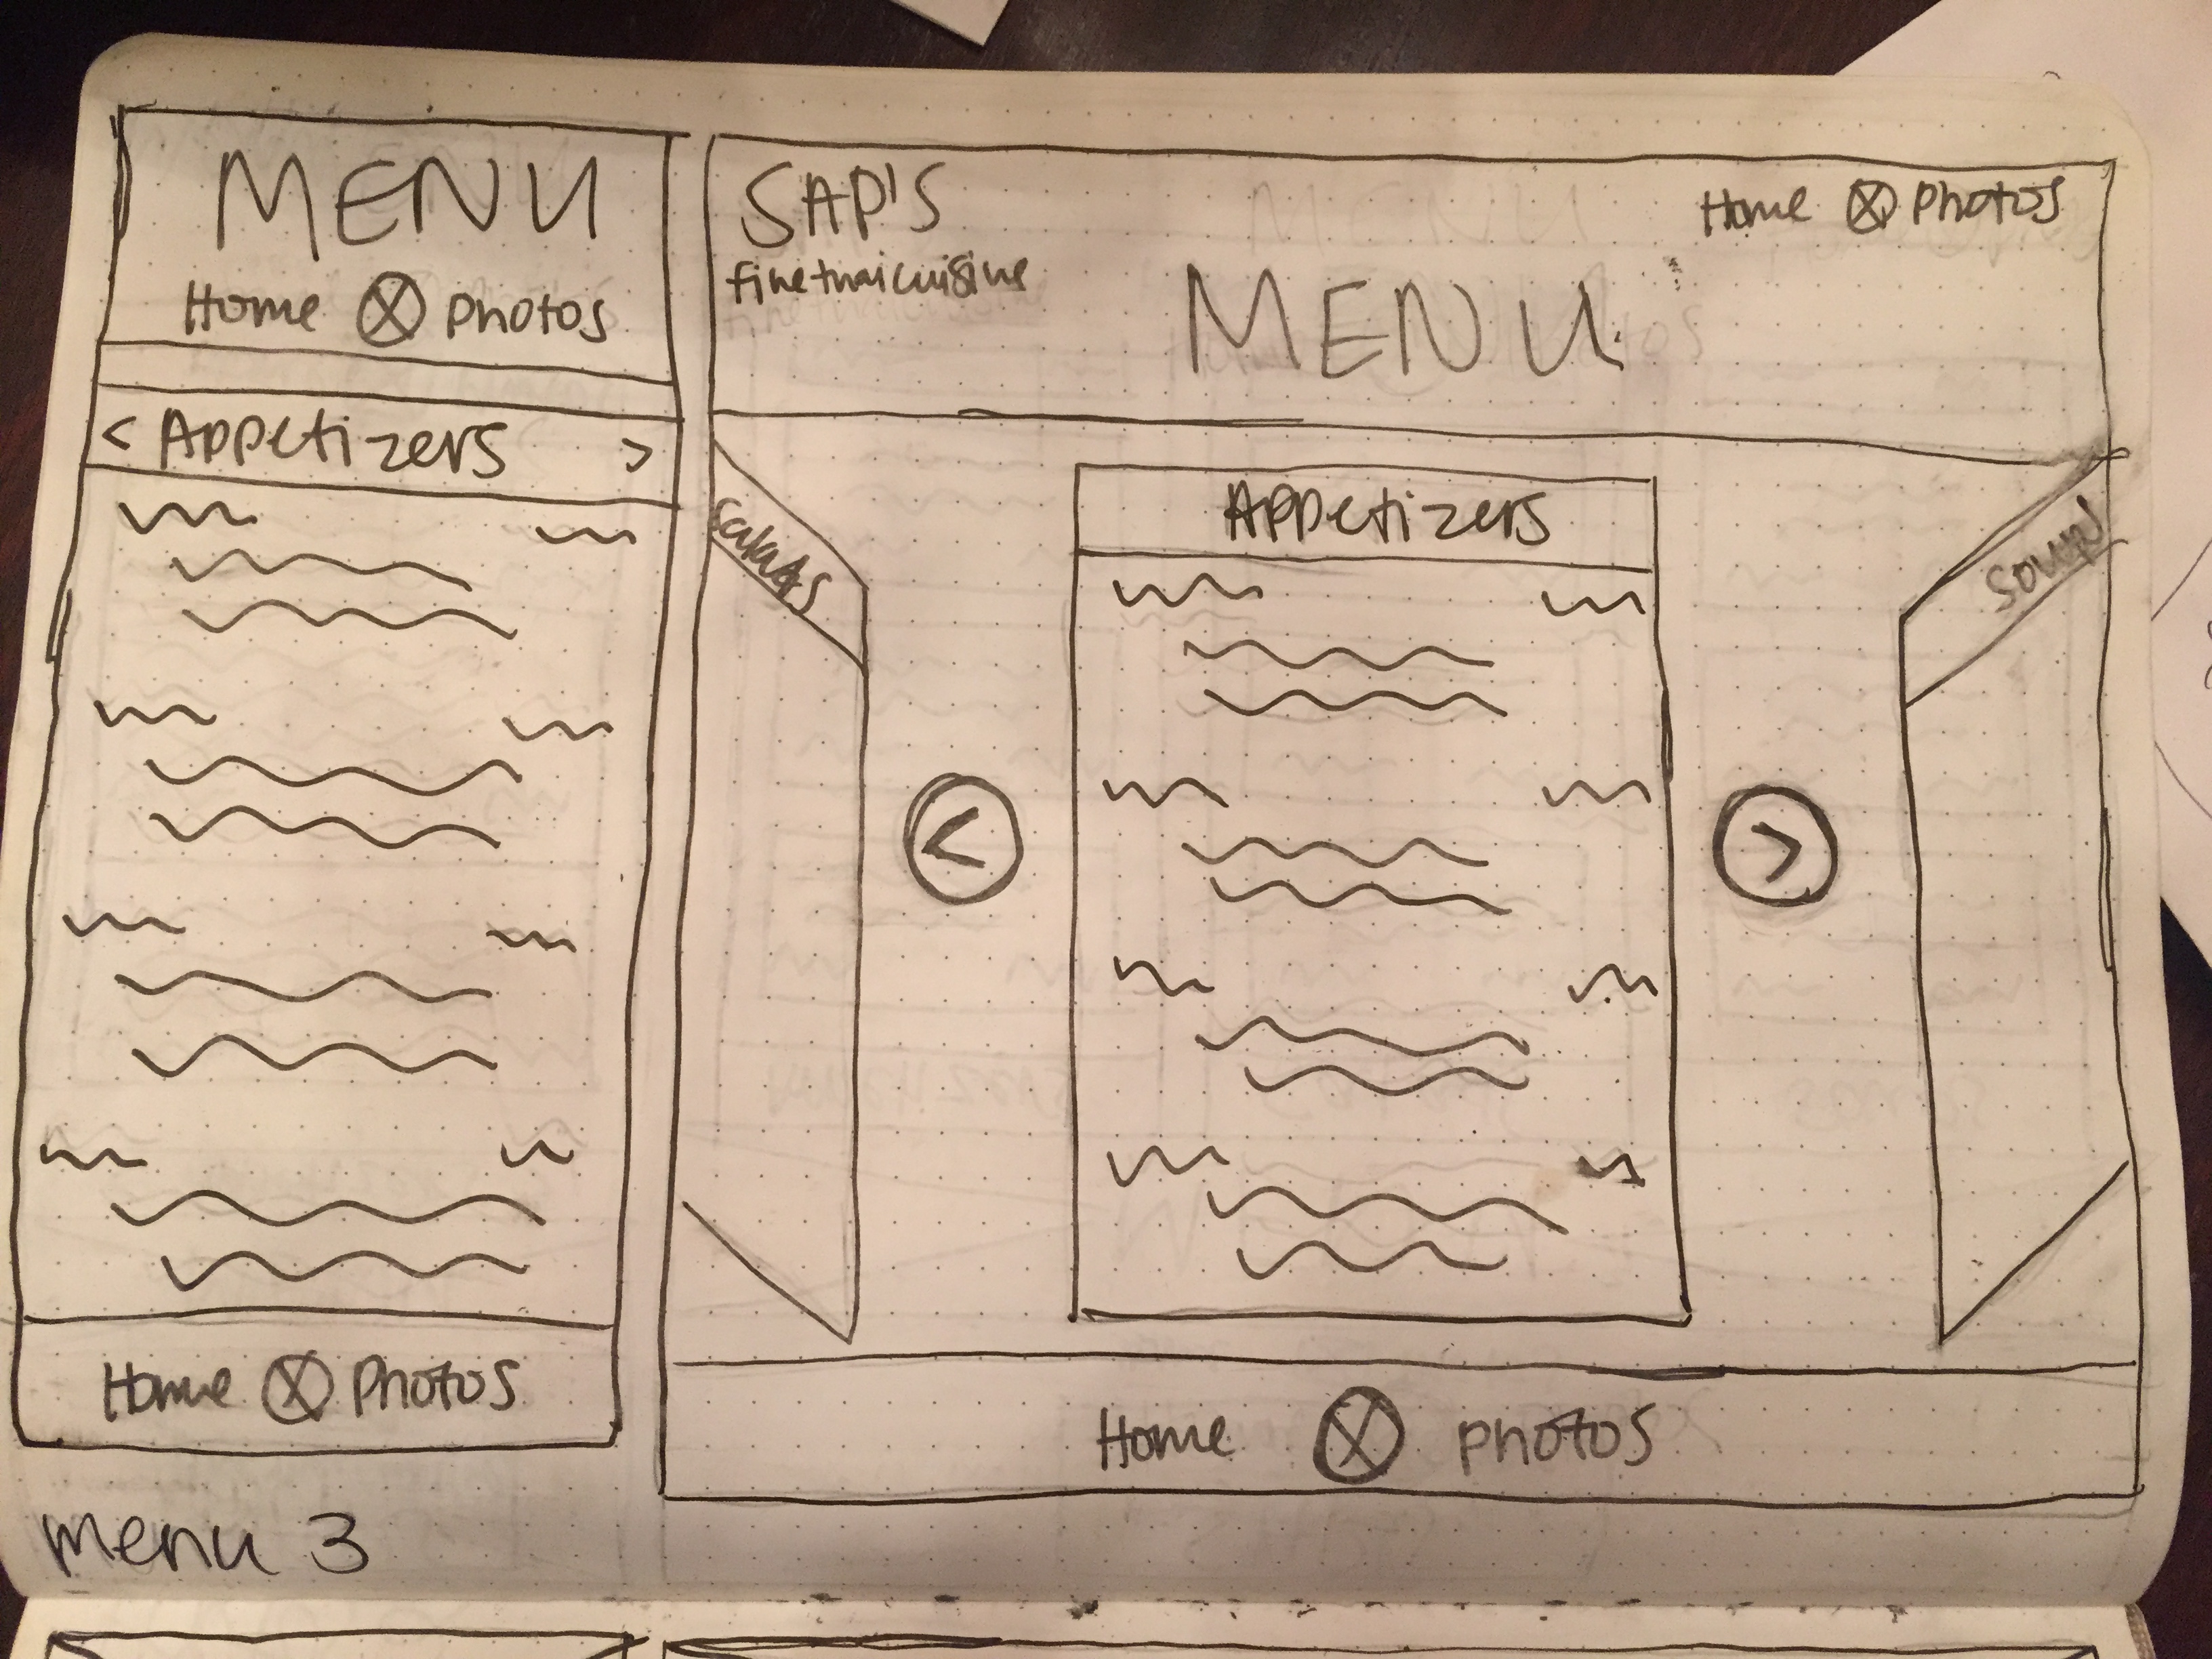 MENU
Home Photos
< Appetizers >
Home Photos
menu 3
SAP'S
fine thai cuisine
Home Photos
MENU
Salads
Appetizers
Soups
<
>
Home Photos